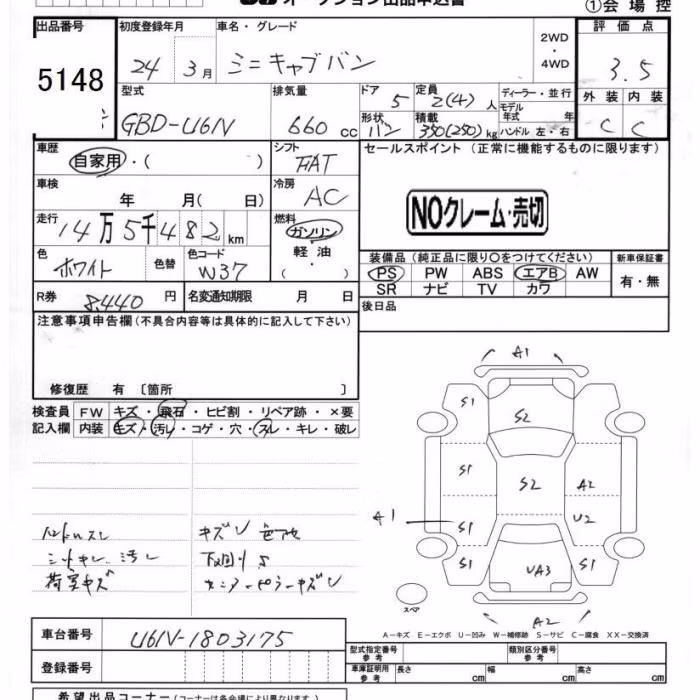 オークション出品申込書
①会場控
出品番号
5148
初度登録年月
24 3月
車名・グレード
ミニキャブバン
2WD
・
4WD
評価点
3.5
型式
GBD-U61V
排気量
660 cc
ドア
5
定員
2(4)人
ディーラー・並行
モデル
年式 年
ハンドル 左・右
形状
バン
積載
350(250)kg
外装 内装
C C
車歴
自家用・( )
シフト
FAT
セールスポイント(正常に機能するものに限ります)
車検
年 月( 日)
冷房
AC
NOクレーム・売切
走行
14万5千482km
燃料
ガソリン
軽油
・( )
色
ホワイト
色替
色コード
W37
装備品(純正品に限り〇をつけてください)
新車保証書
PS PW ABS エアB AW
SR ナビ TV カワ
有・無
R券 8,440円
名変通知期限 月 日
後日品
注意事項申告欄(不具合内容等は具体的に記入して下さい)
修復歴 有〔箇所 〕
検査員 FW キズ・飛石・ヒビ割・リペア跡・×要
記入欄 内装 キズ・汚レ・コゲ・穴・スレ・キレ・破レ
A1
S1
S2
S1
S2
A2
A1
S1
U2
S1
UA3
S1
A2
スペア
ハンドルスレ
シートキレ、汚レ
荷室キズ
下回りS
A－キズ E－エクボ U－凹み W－補修跡 S－サビ C－腐食 XX－交換済
車台番号
U61V-1803175
登録番号
型式指定番号
参考
類別区分番号
参考
車庫証明用
参考
長さ cm 幅 cm 高さ cm
希望出品コーナー(コーナーは各会場により異なります)